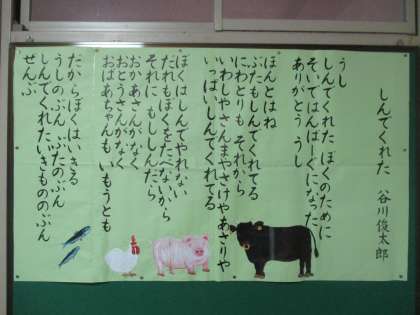 しんでくれた　谷川俊太郎
うし
しんでくれた ぼくのために
そいではんばーぐになった
ありがとう うし
ほんとはね
ぶたもしんでくれてる
にわとりも それから
いわしやさんまやさけやあさりや
いっぱいしんでくれてる
ぼくはしんでやれない
だれもぼくをたべないから
それに もししんだら
おかあさんがなく
おとうさんがなく
おばあちゃんも いもうとも
だからぼくはいきる
うしのぶん ぶたのぶん
しんでくれたいきもののぶん
ぜんぶ